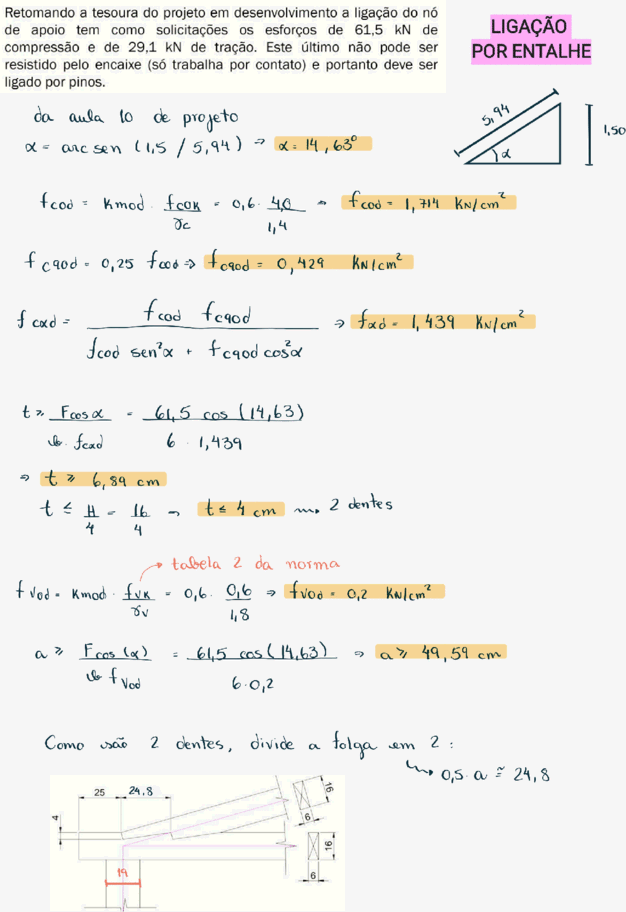 Retomando a tesoura do projeto em desenvolvimento a ligação do nó
de apoio tem como solicitações os esforços de 61,5 kN de
compressão e de 29,1 kN de tração. Este último não pode ser
resistido pelo encaixe (só trabalha por contato) e portanto deve ser
ligado por pinos.
LIGAÇÃO
POR ENTALHE
da aula 10 de projeto
α = arc sen (1,5 / 5,94) → α = 14,63°
5,94
α
1,50
fc0d = Kmod . fc0k / γc = 0,6 . 4,0 / 1,4 → fc0d = 1,714 KN/cm²
fc90d = 0,25 fc0d → fc90d = 0,429 KN/cm²
fcαd = fc0d fc90d / fc0d sen²α + fc90d cos²α → fαd = 1,439 KN/cm²
t ≥ F cos α / b . fcαd = 61,5 cos (14,63) / 6 . 1,439
→ t ≥ 6,89 cm
t ≤ H / 4 = 16 / 4 → t ≤ 4 cm → 2 dentes
tabela 2 da norma
fv0d = Kmod . fvk / γv = 0,6 . 0,6 / 1,8 → fv0d = 0,2 KN/cm²
a ≥ F cos (α) / b fv0d = 61,5 cos (14,63) / 6 . 0,2 → a ≥ 49,59 cm
Como são 2 dentes, divide a folga em 2 :
↳ 0,5 . a ≅ 24,8
25 24,8 16
6
4
16
19
6